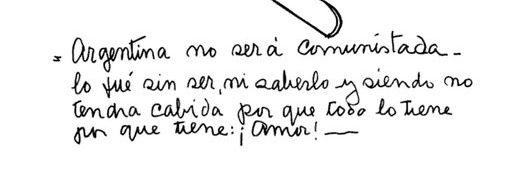 = Argentina no será comunistada -
lo fué sin ser, ni saberlo y siendo no
tendra cabida por que todo lo tiene
por que tiene: ¡Amor! —